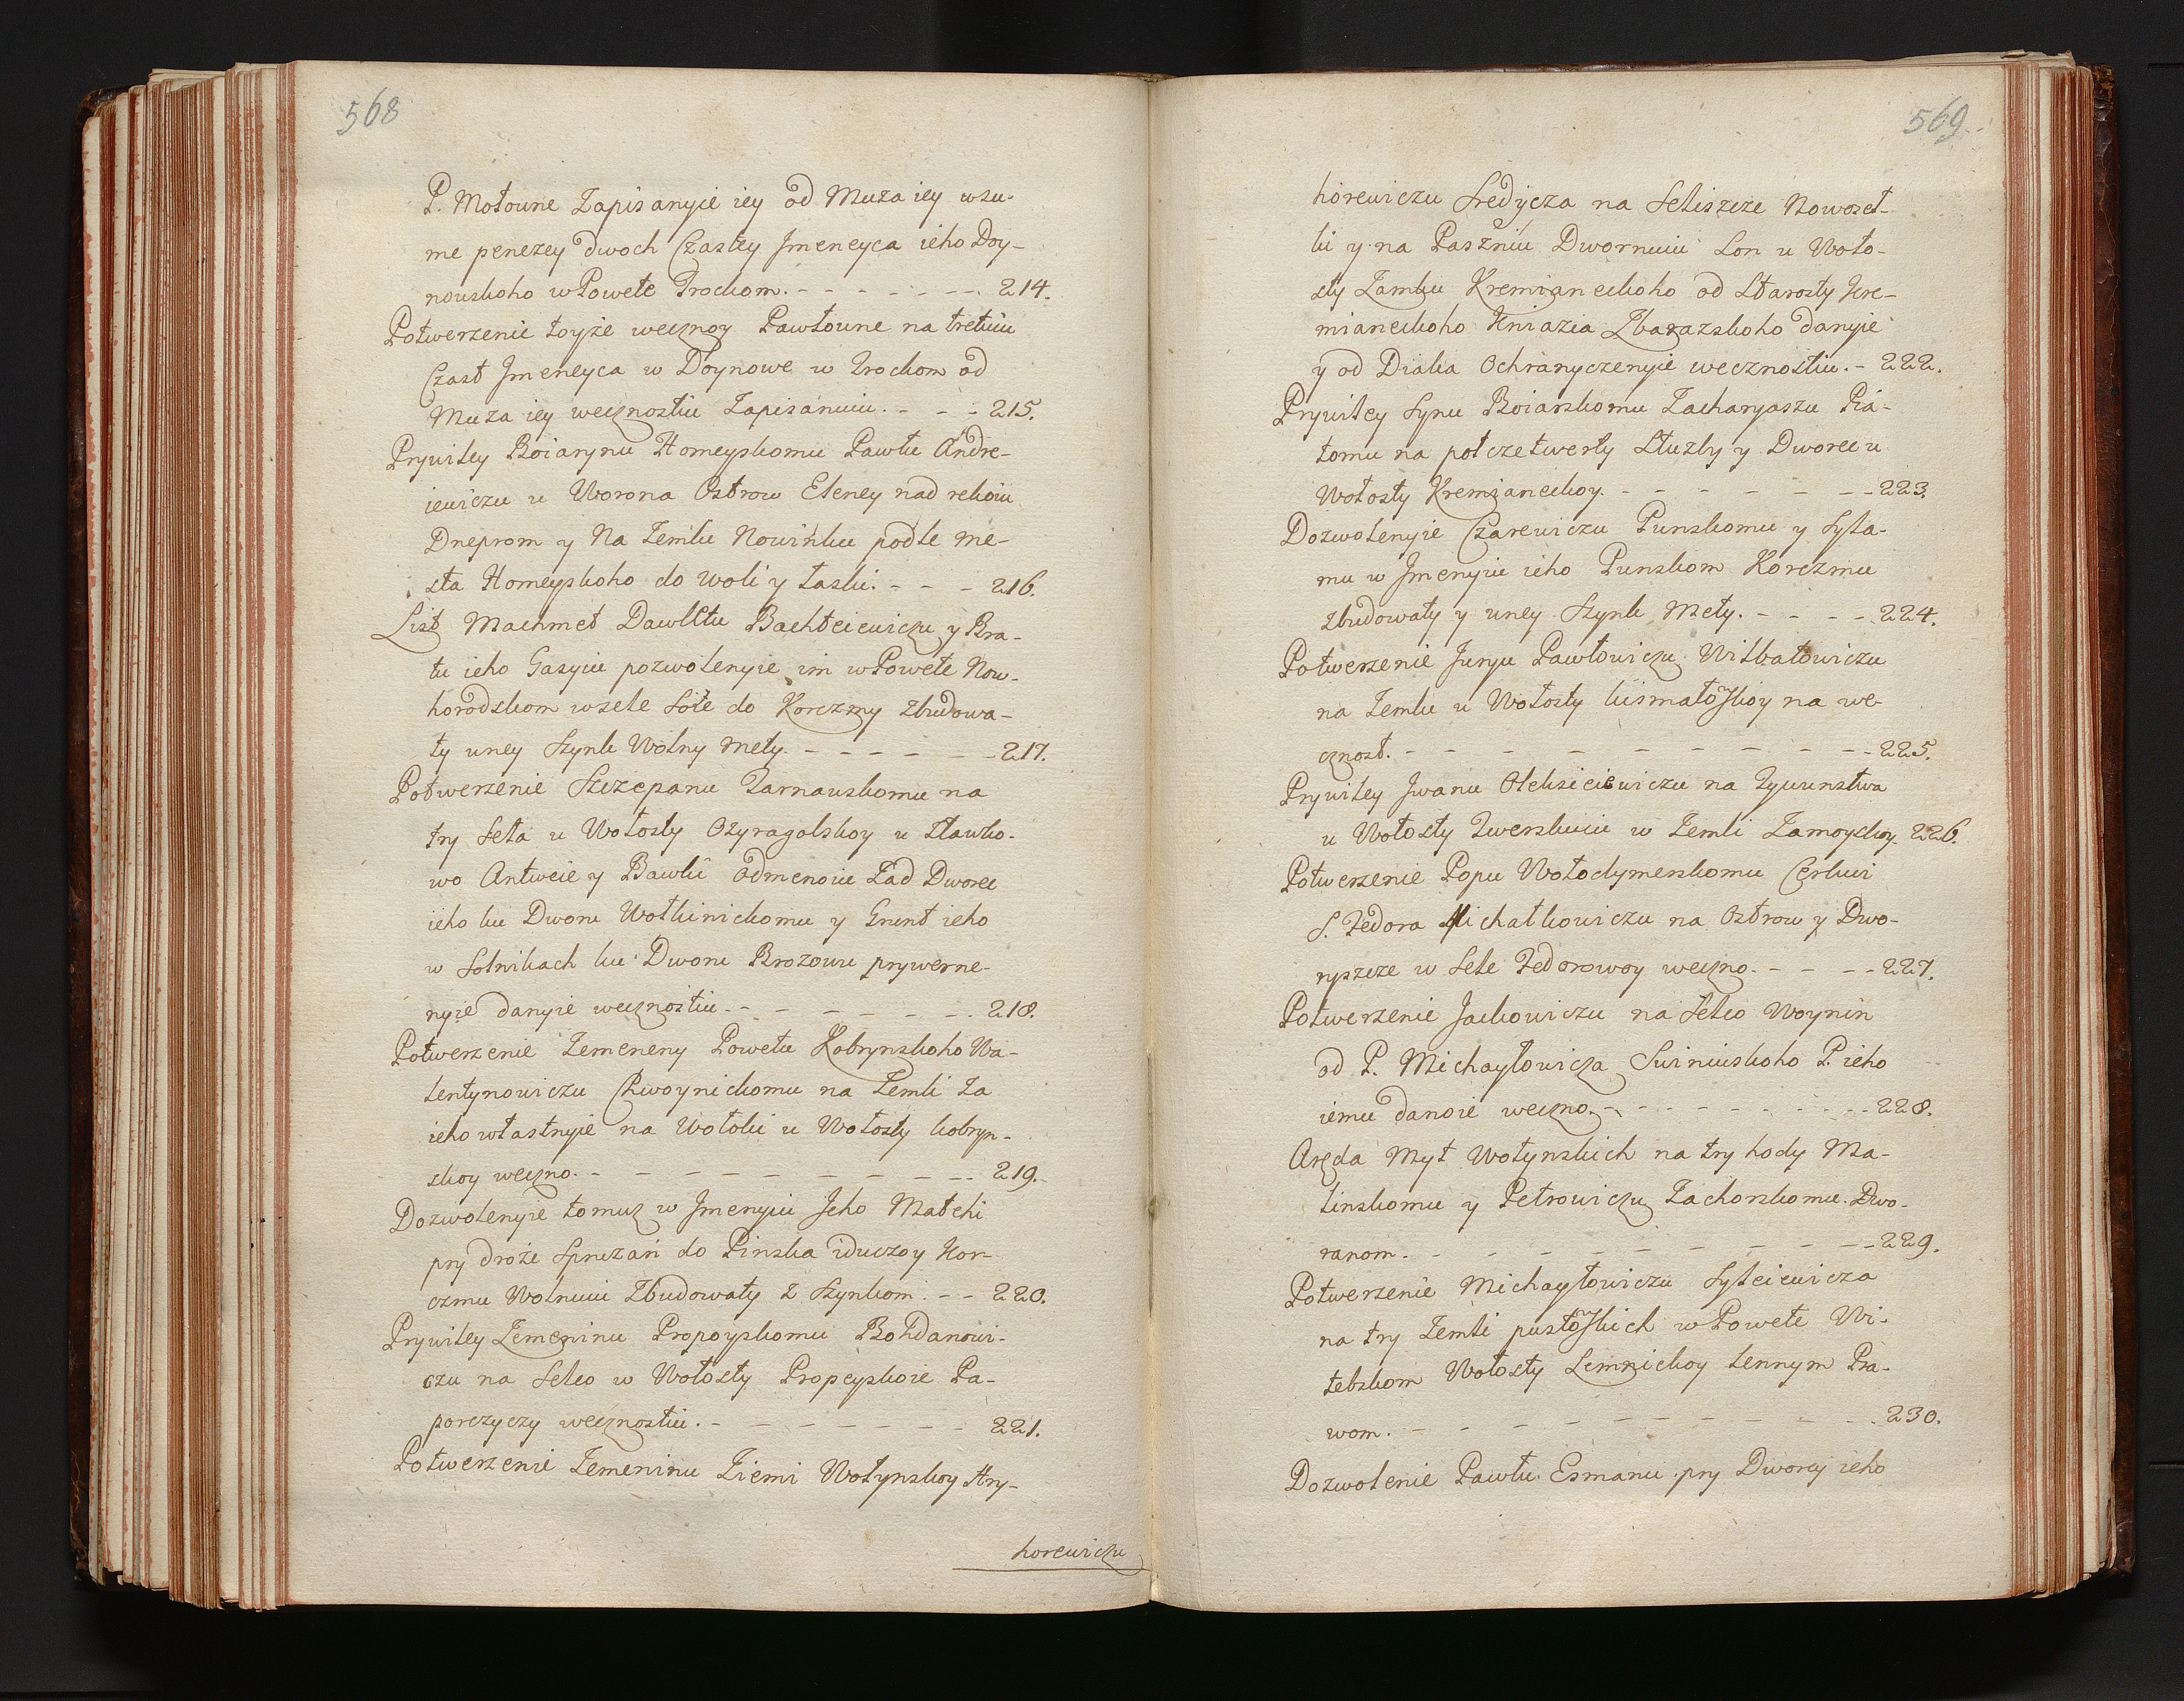 568
P. Mołoune Zapisanyie iey od Muza iey wsu-
me penezey dwoch Czastey Jmeneyca ieho Doy-
nouskoho w Powete Trockom. - - - - - - - 214.
Potwerzenie toyże wecznoy Pawłoune na tretiuiu
Czast Jmeneyca w Doynowe w Trockom od
Muza iey wecznostiu Zapisanuiu. - - - 215.
Prywiley Boiarynu Homeyskomu Pawłu Andre-
iewiczu u Worona Ostrow Eleney nad rekoiu
Dneprom y Na Zemlu Nowinku podle me-
sta Homeyskoho do woli y łaski. - - - 216.
List Machmet Dawletu Bachteiewiczu y Bra-
tu ieho Gasyiu pozwolenyie im w Powete Now-
horodskom wsele Sole do Korczmy zbudowa-
ty uney Szynk Wolny mety. - - - - - - 217.
Potwerzenie Szczepanu Tarnauskomu na
try Seła u Wołosty Ozyragolskoy u Stawko-
wo Antweie y Bawki Odmenoiu Zad Dworec
ieho ku Dworu Wołkinickomu y Grunt ieho
w Solnikach ku Dworu Brozowu prywerne-
nyie danyie wecznostiu. - - - - - - - - 218.
Potwerzenie Zemeneny Powetu Kobrynskoho Wa-
lentynowiczu Chwoynickomu na Zemli Za
ieho własnyie na Wołoki u Wołosty kobryn-
skoy weczno. - - - - - - - - - 219.
Dozwolenyie tomuz w Jmenyiu Jeho Matchi
pry droże Spruzań do Pinska iduczoy Kor-
czmu Wolnuiu Zbudowaty z Szynkom. - - 220.
Prywiley Zemeninu Propoyskomu Bohdanowi-
czu na Selco w Wołosty Propeyskoie Pa-
porczyczy wecznostiu. - - - - - - - - 221.
Potwerzenie Zemeninu Ziemi Wołynskoy Hry-
horewiczu
569
horewiczu Sredycza na Seliszcze Nowoseł-
ki y na Pasżniu Dwornuiu Lon u Woło-
sty Zamku Kremianeckoho od Starosty Kre-
mianeckoho Kniazia Zbarazskoho danyie
y od Diaka Ochranyczenyie wecznostiu. - 222.
Prywiley Synu Boiarskomu Zacharyaszu Pia-
tomu na poł czetwerty Słuzby y Dworec u
Wołosty Kremianeckoy. - - - - - - - 223.
Dozwolenyie Czarewiczu Punskomu y Syła-
mu w Jmenyiu ieho Punskom Korczmu
zbudowaty y uney Szynk Mety. - - - - 224.
Potwerzenie Juryu Pawłowiczu Witbatowiczu
na Zemlu u Wołosty na we-
cznost. - - - - - - - - - - 225.
Prywiley Jwanu Olekseieiewiczu na Tywunstwa
u Wołosty Twerskuiu w Zemli Zamoyskoy. 226.
Potwerzenie Popu Wołodymerskomu Cerkwi
S. Fedora Michałkowiczu na Ostrow y Dwo-
ryszcze w Sele Fedorowoy weczno. - - - - 227.
Potwerzenie Jackowiczu na Selco Woynin
od P. Michayłowicza Swiniuskoho P. ieho
iemu danoie weczno. - - - - - - - - - 228.
Aręda Myt Wołynskich na try hody Ma-
linskomu y Petrowiczu Zachorskomu Dwo-
ranom. - - - - - - - - - - - 229.
Potwerzenie Michayłowiczu Syleiewicza
na try Zemli pustoskich w Powete Wi-
tebskom Wołosty Lemnickoy lennym Pra-
wom. - - - - - - - - - - - 230.
Dozwolenie Pawłu Esmanu pry Dworcy ieho